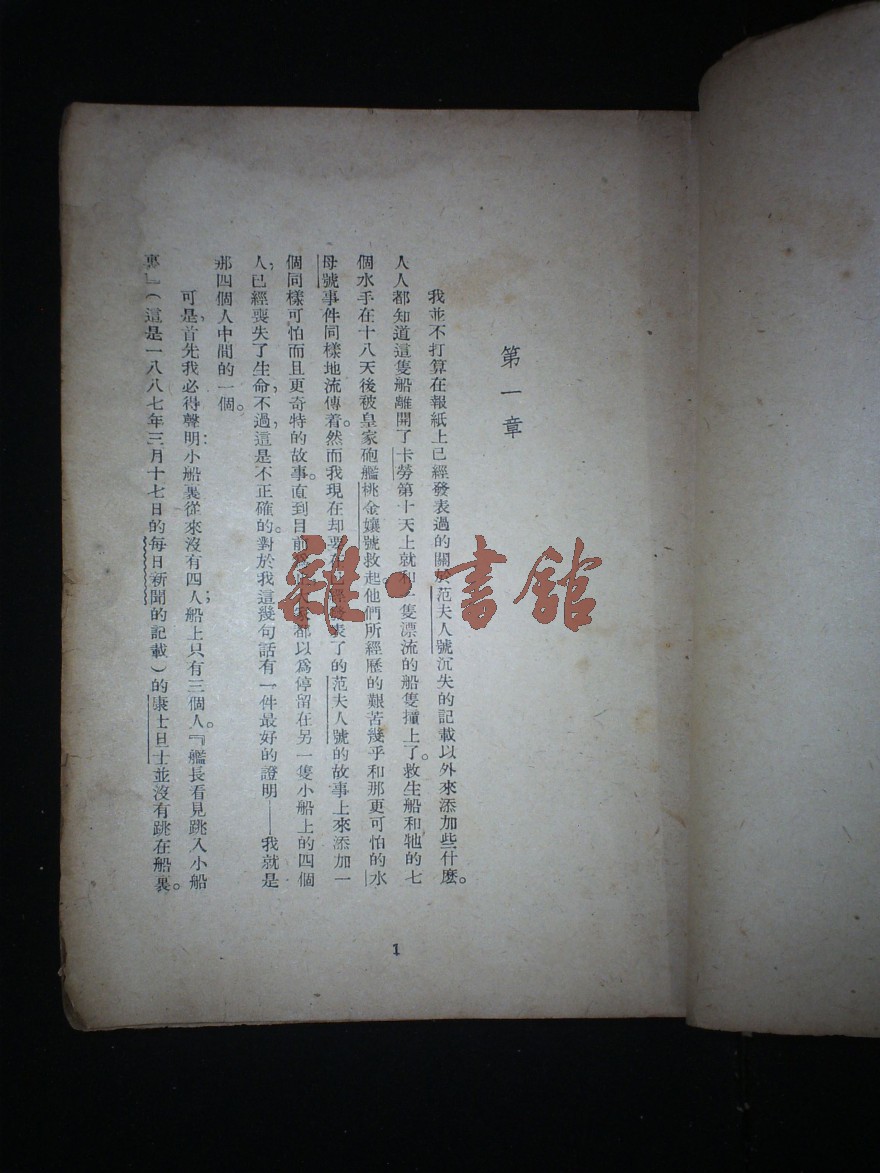 第一章
我並不打算在報紙上已經發表過的關於范夫人號沉失的記載以外來添加些什麼。
人人都知道這隻船離開了卡勞第十天上就和一隻漂流的船隻撞上了。救生船和牠的七
個水手在十八天後被皇家砲艦桃金孃號救起。他們所經歷的艱苦幾乎和那更可怕的水
母號事件同樣地流傳着。然而我現在却要在已經發表了的范夫人號的故事上來添加一
個同樣可怕而且更奇特的故事。直到目前 都以爲停留在另一隻小船上的四個
人,已經喪失了生命,不過,這是不正確的。對於我這幾句話有一件最好的證明——我就是
那四個人中間的一個。
可是,首先我必得聲明:小船裏從來沒有四人;船上只有三個人。『艦長看見跳入小船
裏』(這是一八八七年三月十七日的每日新聞的記載)的康士旦士並沒有跳在船裏。
1
雜·書館